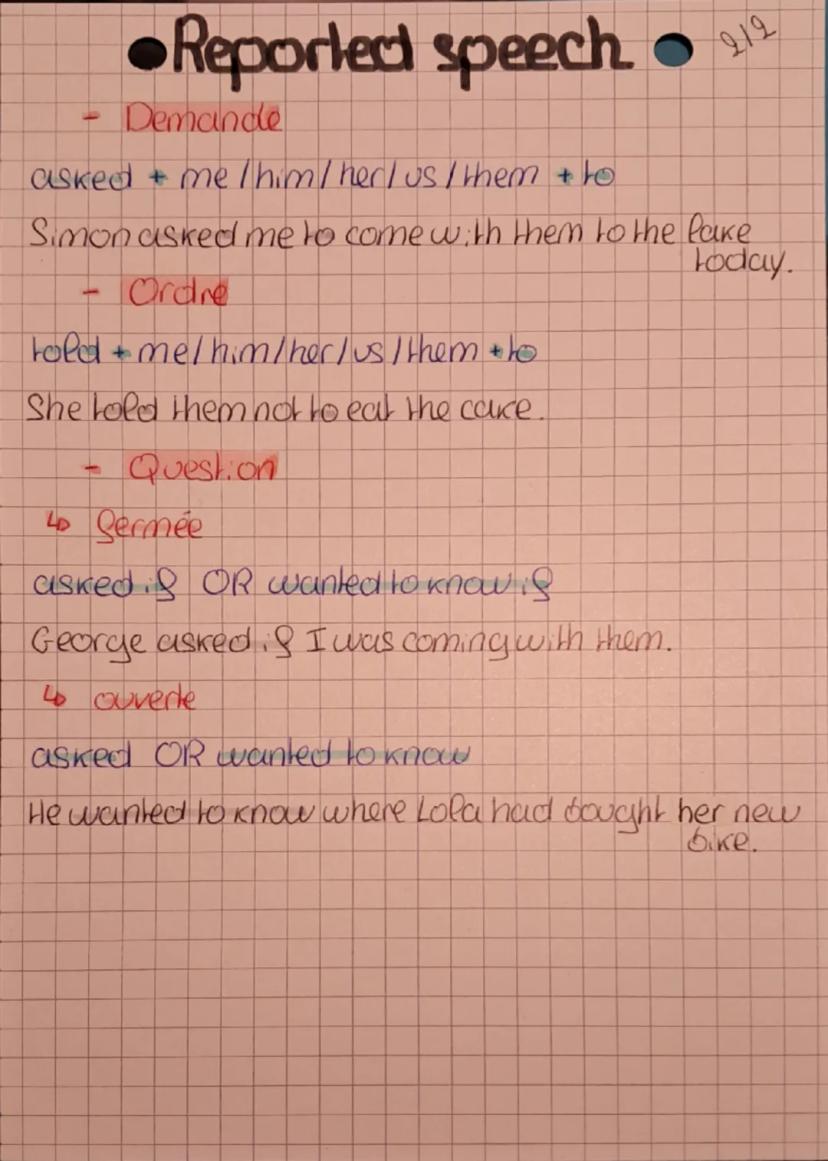 Reported speech 2/2
- Demande
asked + me / him / her / us / them + to
Simon asked me to come with them to the lake
today.
- Ordre
told + me / him / her / us / them + to
She told them not to eat the cake.
- Question
↳ fermée
asked if OR wanted to know if
George asked if I was coming with them.
↳ ouverte
asked OR wanted to know
He wanted to know where Lola had bought her new
bike.